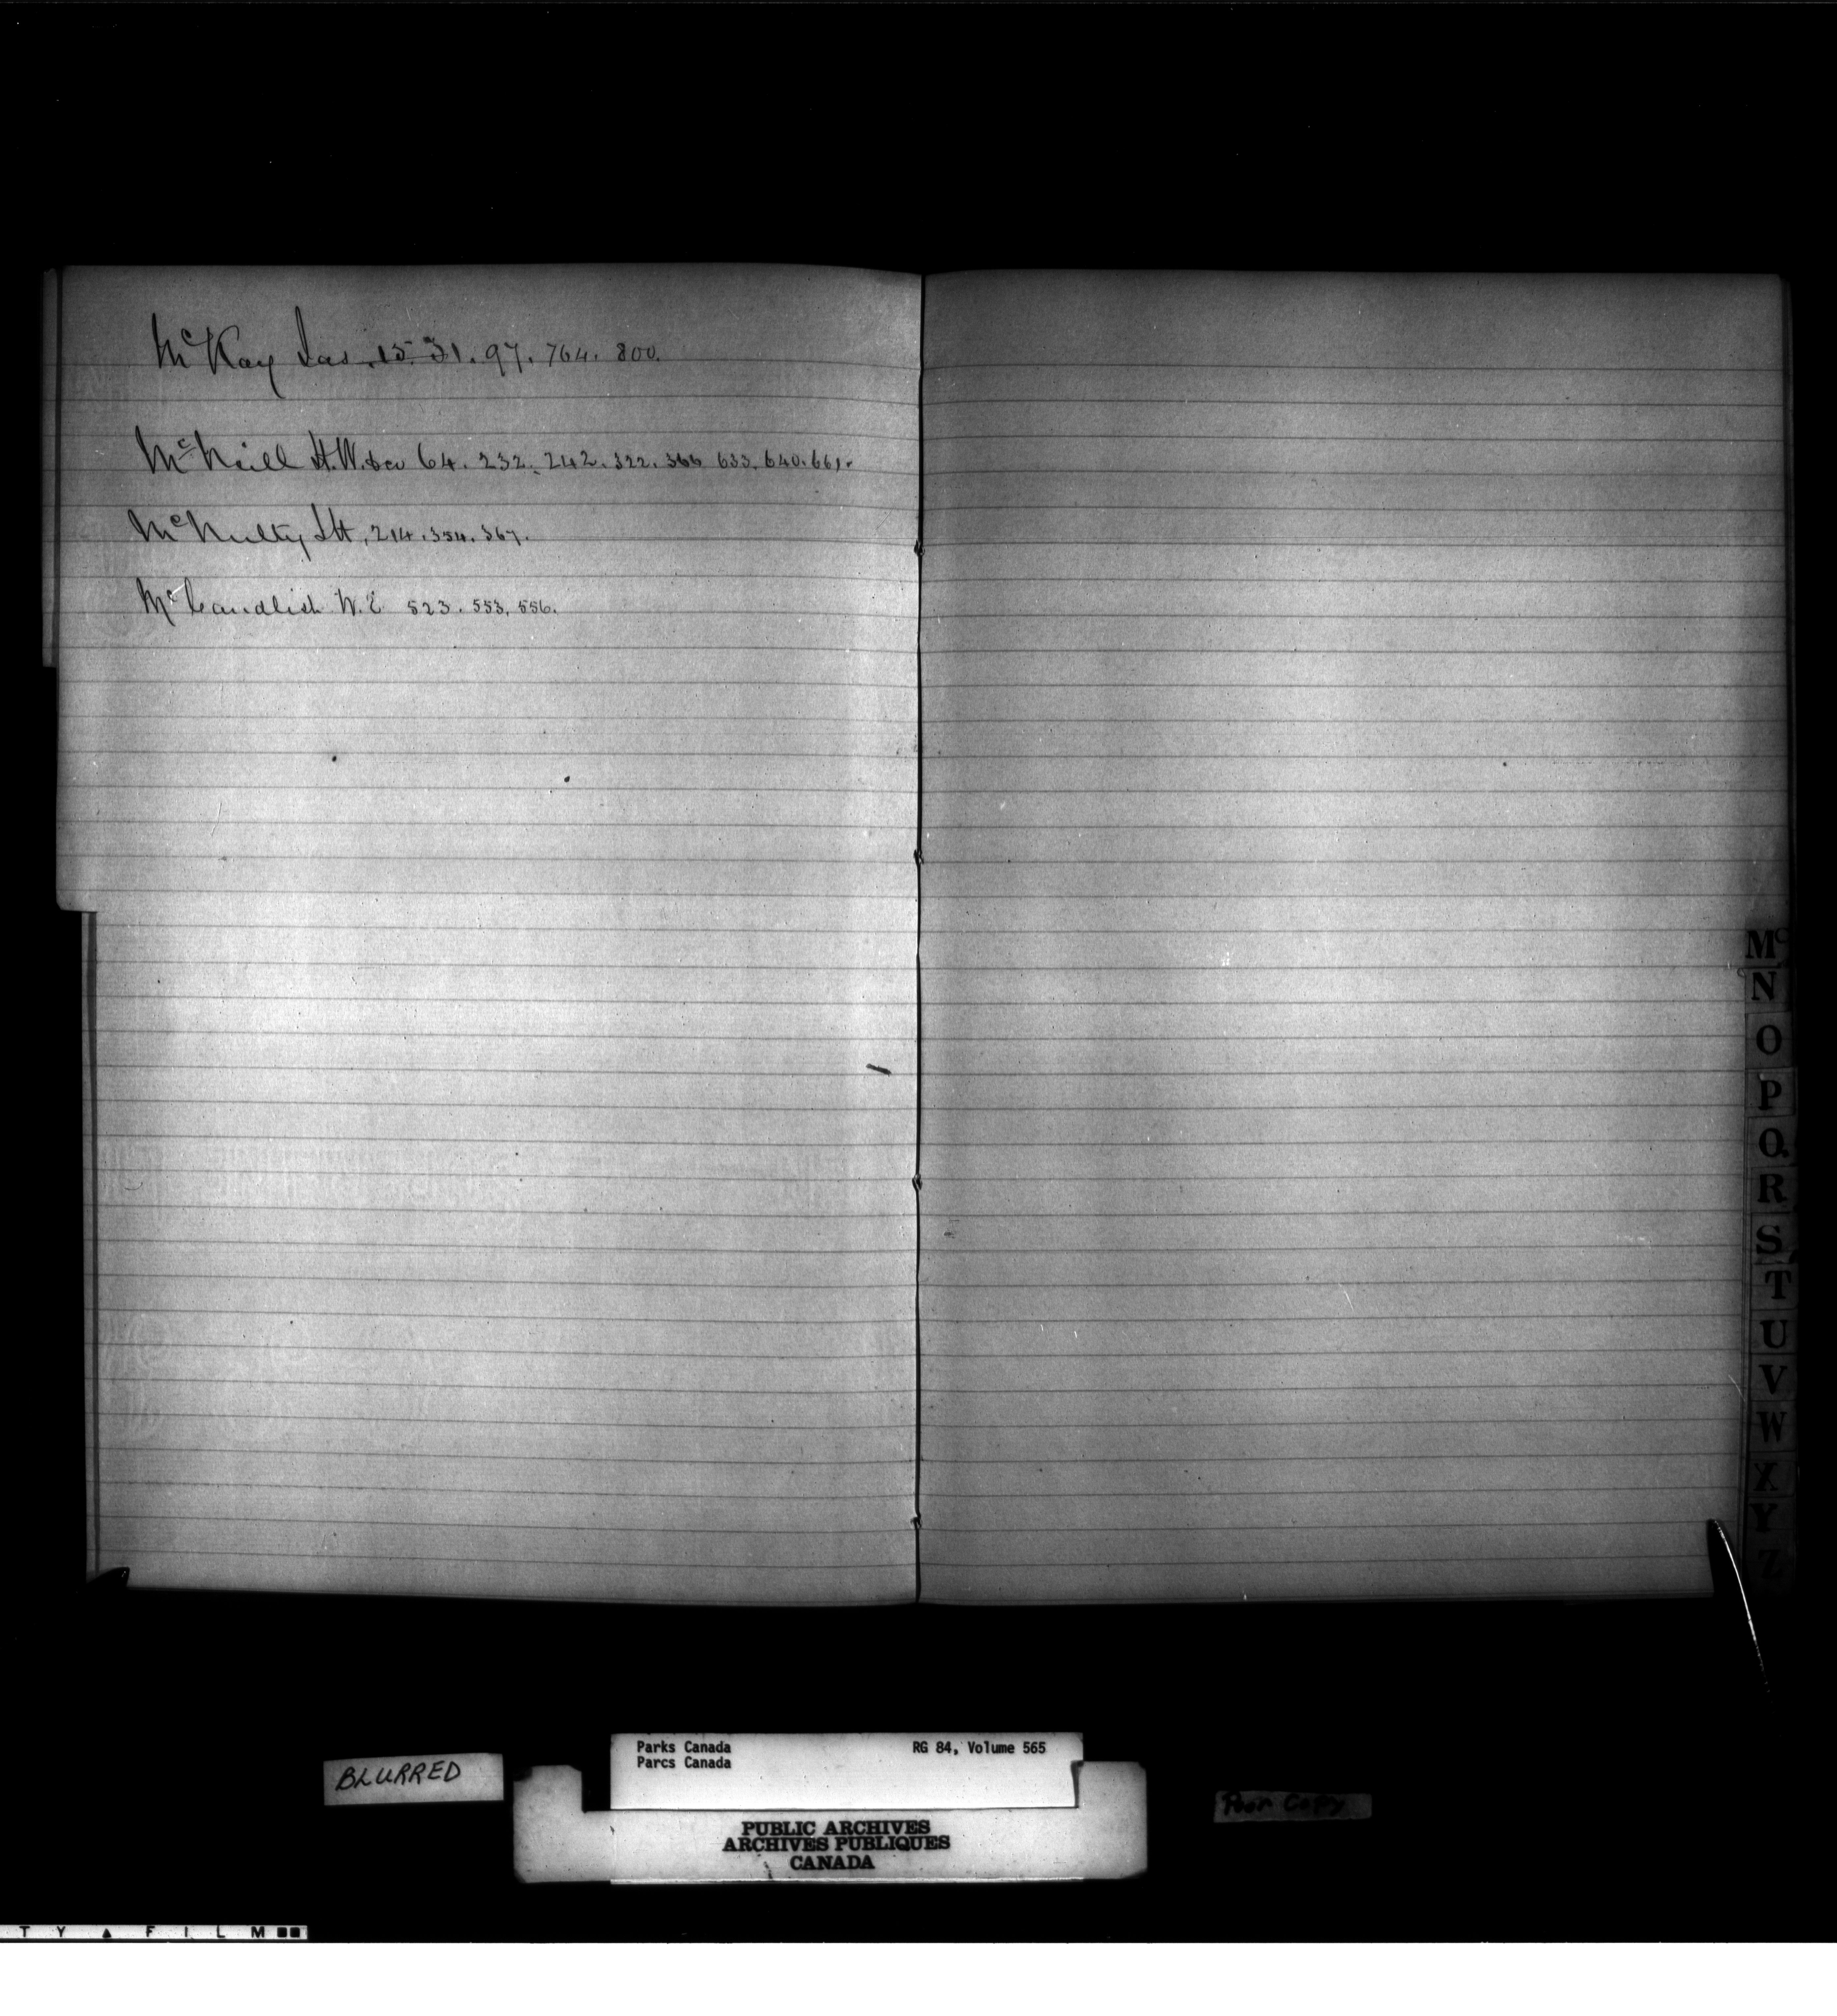 McKay Jas. 15. 31. 97. 764. 800.
McNeill H.W. & Co 64. 232. 242. 322. 366 633. 640. 661.
McNulty, 214. 354. 367.
McCandlish W.E 523. 553. 556.
Mc
N
O
P
Q
R
S
T
U
V
W
X
Y
Z
BLURRED
Parks Canada RG 84, Volume 565
Parcs Canada
Poor Copy
PUBLIC ARCHIVES
ARCHIVES PUBLIQUES
CANADA
T Y ▲ F I L M ■■